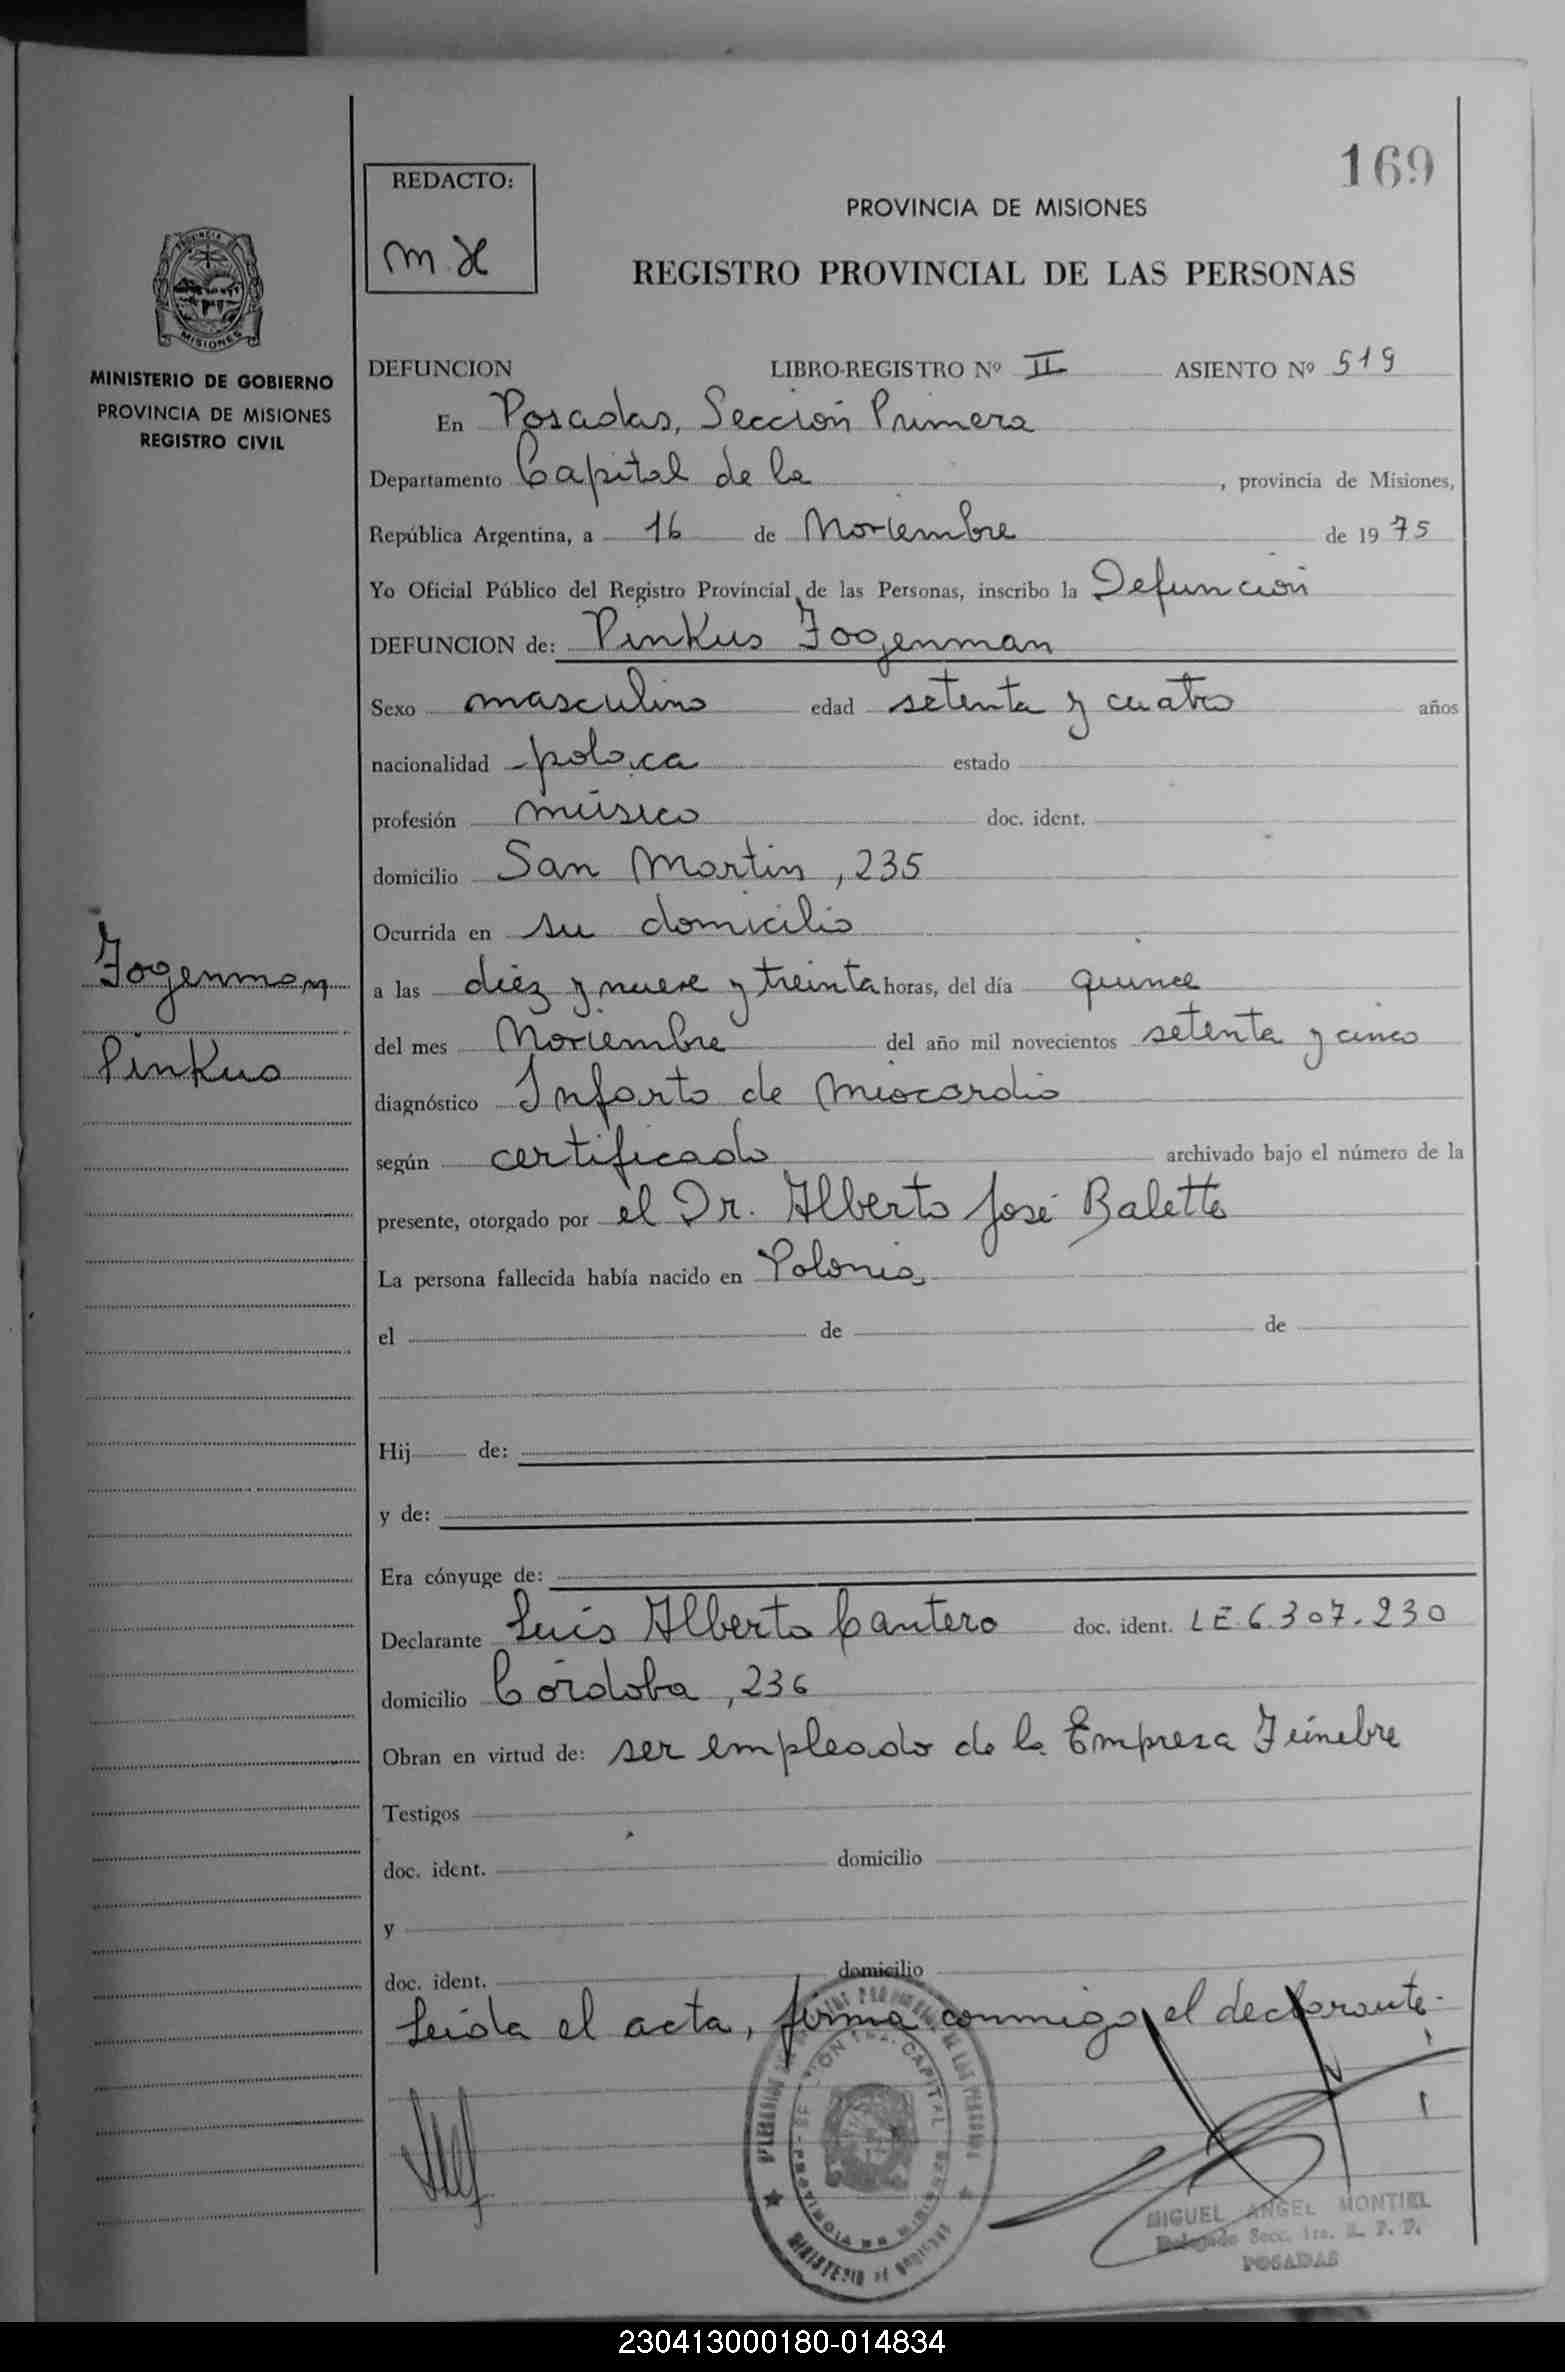 169
REDACTO:
PROVINCIA DE MISIONES
REGISTRO PROVINCIAL DE LAS PERSONAS
MISIONES
MINISTERIO DE GOBIERNO
PROVINCIA DE MISIONES
REGISTRO CIVIL
DEFUNCION LIBRO-REGISTRO Nº II ASIENTO Nº 519
En Posadas, Sección Primera
Departamento Capital de la , provincia de Misiones,
República Argentina, a 16 de Noviembre de 1975
Yo Oficial Público del Registro Provincial de las Personas, inscribo la Defunción
DEFUNCION de: Pinkus Fogenman
Sexo masculino edad setenta y cuatro años
nacionalidad polaca estado
profesión músico doc. ident.
domicilio San Martin, 235
Ocurrida en su domicilio
Fogenman
a las diez y nueve y treinta horas, del día quince
Pinkus
del mes Noviembre del año mil novecientos setenta y cinco
diagnóstico Infarto de Miocardio
según certificado archivado bajo el número de la
presente, otorgado por el Dr. Alberto José Balette
La persona fallecida había nacido en Polonia,
el de de
Hij de:
y de:
Era cónyuge de:
Declarante Luis Alberto Cantero doc. ident. LE 6.307.230
domicilio Córdoba, 236
Obran en virtud de: ser empleado de la Empresa Fúnebre
Testigos
doc. ident. domicilio
y
doc. ident. domicilio
Leída el acta, firma conmigo el declarante.
MIGUEL ANGEL MONTIEL
Delegado Secc. 1ra. R. P. P.
POSADAS
230413000180-014834